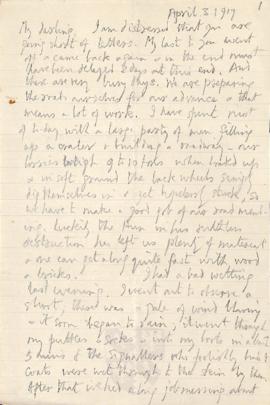 1
April 3. 1917
My darling. I am distressed that you are
going short of letters. My last to you went
off & came back again & in the end must
have been delayed 2 days at this end. And
these are very busy days. We are preparing
the roads ourselves for our advance & that
means a lot of work. I have spent most
of today with a large party of men filling
up a crater & building a roadway – our
lorries weigh 9 to 10 tons when loaded up
& in soft ground the back wheels simply
dig themselves in & get hopelessly stuck, so
we have to make a good job of our road mend-
ing. Luckily the Hun in his ruthless
destruction has left us plenty of material
& one can get along quite fast with wood
& bricks. I had a bad wetting
last evening. I went out to observe a
shoot, there was a gale of wind blowing
& it soon began to rain; it went through
my putties & into my boots in about
5 mins & the signallers who foolishly hadn't
coats were wet through to the skin by
After that we had a long job messing about